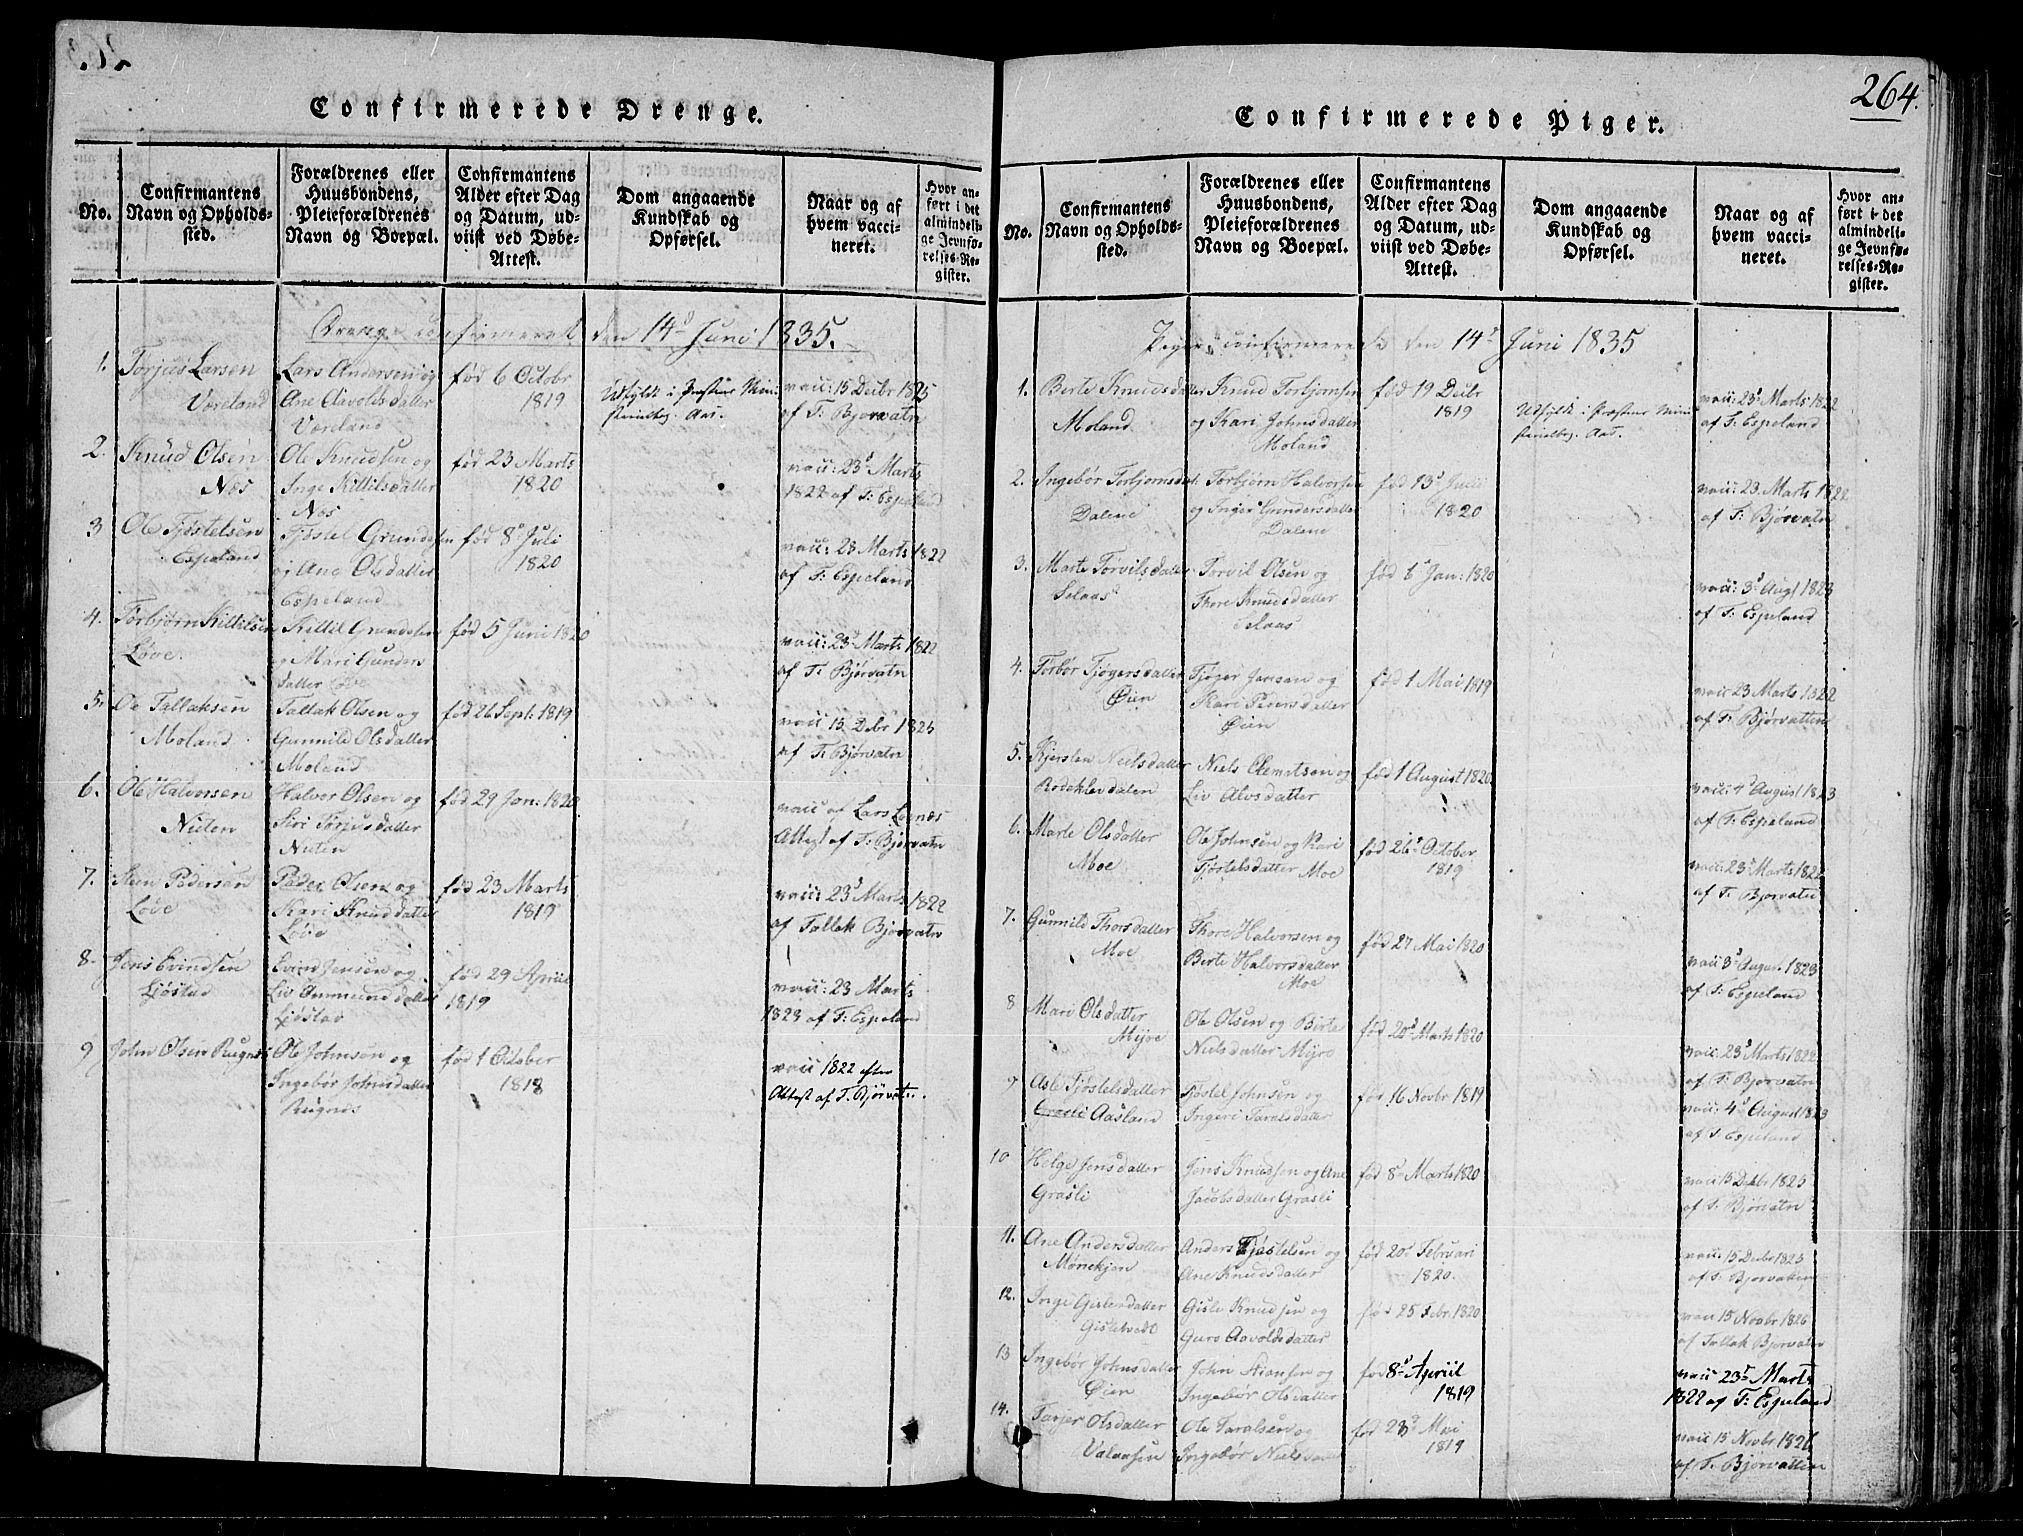 264.
Confirmerede Drenge.
No.
Confirmantens
Navn og Opholds-
sted.
Forældrenes eller
Huusbondens,
Pleieforældrenes
Navn og Boepæl.
Confirmantens
Alder efter Dag
og Datum, ud-
viist ved Døbe-
Attest.
Dom angaaende
Kundskab og
Opførsel.
Naar og af
hvem vacci-
neret.
Hvor an-
ført i det
almindeli-
ge Jevnfø-
relses-Re-
gister.
Drenge confirmeret den 14d Juni 1835.
1. Torjus Larsen
Væreland
Lars Andersen og
Ane Aavoldsdatter
Væreland
fød 6 Octobr
1819
Udfyldt i Præstens Mini
sterialbg. Aas.
vacc: 15 Decbr 1825
af T: Bjorvatn
2. Knud Olsen
Næs
Ole Knudsen og
Inge Kittilsdatter
Næs
fød 23 Marts
1820
vacc: 23d Marts
1822 af T: Espeland
3 Ole Tjøstelsen
Espeland
Tjøstel Grundesen
og Ane Olsdatter
Espeland
fød 8d Juli
1820
vacc: 23 Marts 1822
af T: Espeland
4. Torbjørn Kittilsen
Løve
Kittil Grundesen
og Mari Gunders
datter Løve
fød 5 Juni 1820
vacc: 23d Marts 1822
af T: Bjørvatn
5. Ole Tallaksen
Moland
Tallak Olsen og
Gunnild Olsdatter
Moland
fød 26 Sept: 1819
vacc 15 Decbr 1825
af T: Bjørvatn
6. Ole Halvorsen
Nuten
Halvor Olsen og
Siri Torjusdatter
Nuten
fød 29 Jan: 1820
vacc af Lars Lognæs
Attest af T: Bjørvatn
7. Sten Pedersen
Løve
Peder Olsen og
Kari Knudsdatter
Løve
fød 23 Marts
1819
vacc: 23d Marts 1822
af Tallak Bjorvatn
8. Jens Evindsen
Ljøstad
Evind Jensen og
Liv Anmundsdatter
Ljøstad
fød 29 Apriil
1819
vacc: 23 Marts
1823 af T: Espeland
9 John Olsen Rugnes
Ole Johnsen og
Ingebør Johnsdatter
Rugnes
fød 1 October
1818
vacc 1822 efter
Attest af T. Bjørvatn.
Confirmerede Piger.
No.
Confirmantens
Navn og Opholds-
sted.
Forældrenes eller
Huusbondens,
Pleieforældrenes
Navn og Boepæl.
Confirmantens
Alder efter Dag
og Datum, ud-
viist ved Døbe-
Attest.
Dom angaaende
Kundskab og
Opførsel.
Naar og af
hvem vacci-
neret.
Hvor an-
ført i det
almindeli-
ge Jevnfø-
relses-Re-
gister.
Piger confirmerede den 14d Juni 1835
1. Berte Knudsdatter
Moland
Knud Torbjornsen
og Kari Johnsdatter
Moland
fød 19 Decbr
1819
Udfyldt i Præstens Mini
sterialbg. Aas.
vacc: 23d Marts 1822
af T: Espeland
2. Ingebør Torbjornsdat:
Dalene
Torbjørn Halvorsen
og Inger Gundersdatter
Dalene
fød 13d Juli
1820
vacc: 23. Marts 1822
af T: Bjørvatn
3. Marte Torvilsdatter
Selaas
Torvil Olsen og
Thore Knudsdatter
Selaas
fød 6d Jan: 1820
vacc: 3d Augt 1823
af T: Espeland
4. Torbør Tjøgersdatter
Øien
Tjøger Jensen og
Kari Pedersdatter
Øien
fød 1 Mai 1819
vacc 23 Marts 1822
af T: Bjørvatten
5. Kjersten Nielsdatter
Rodeklevdalen
Niels Clemetsen og
Liv Alvsdatter
fød 1 August 1820
vacc: 4d August 1823
af T: Espeland
6. Marte Olsdatter
Moe
Ole Johnsen og Kari
Tjøstelsdatter Moe
fød 26d October
1819
vacc: 23d Marts 1822
af T: Bjorvatn
7. Gunnild Thorsdatter
Moe
Thore Halvorsen og
Berte Halvorsdatter
Moe
fød 27 Mai 1820
vacc 3d Augus. 1823
af T: Espeland
8 Mari Olsdatter
Myre
Ole Olsen og Birte
Nielsdatter Myre
fød 20d Marts 1820
vacc: 23d Marts 1822
af T: Bjorvatn
9 Asle Tjøstelsdatter
Grasli Aasland
Tjøstel Johnsen og
Ingeri Taralsdatter
fød 16 Novbr 1819
vacc: 4d August 1823
af T: Espeland
10 Helge Jensdatter
Grasli
Jens Knudsen og Ane
Jacobsdatter Grasli
fød 8d Marts 1820
vacc 15 Decbr 1825
af T: Bjørvatn
11. Ane Andersdatter
Mønekjen
Anders Tjøstelsen og
Ane Knudsdatter
fød 20d Februari
1820.
vacc: 15 Decbr 1825
af T: Bjørvatten
12. Inge Gislesdatter
Gisletvedt
Gisle Knudsen og
Guro Aavoldsdatter
fød 25 Febr 1820
vacc 15 Novbr 1826
af Tallak Bjorvatn
13 Ingebør Johnsdatter
Øien
John Hansen og
Ingebør Olsdatter
fød 8d Apriil
1819
vacc 23d Marts
1822 af T: Espeland
14. Tarjer Olsdatter
Valaasen
Ole Taralsen og
Ingebør Niels
fød 23d Mai
1819
vacc 15 Novbr 1826
af T. Bjorvatten